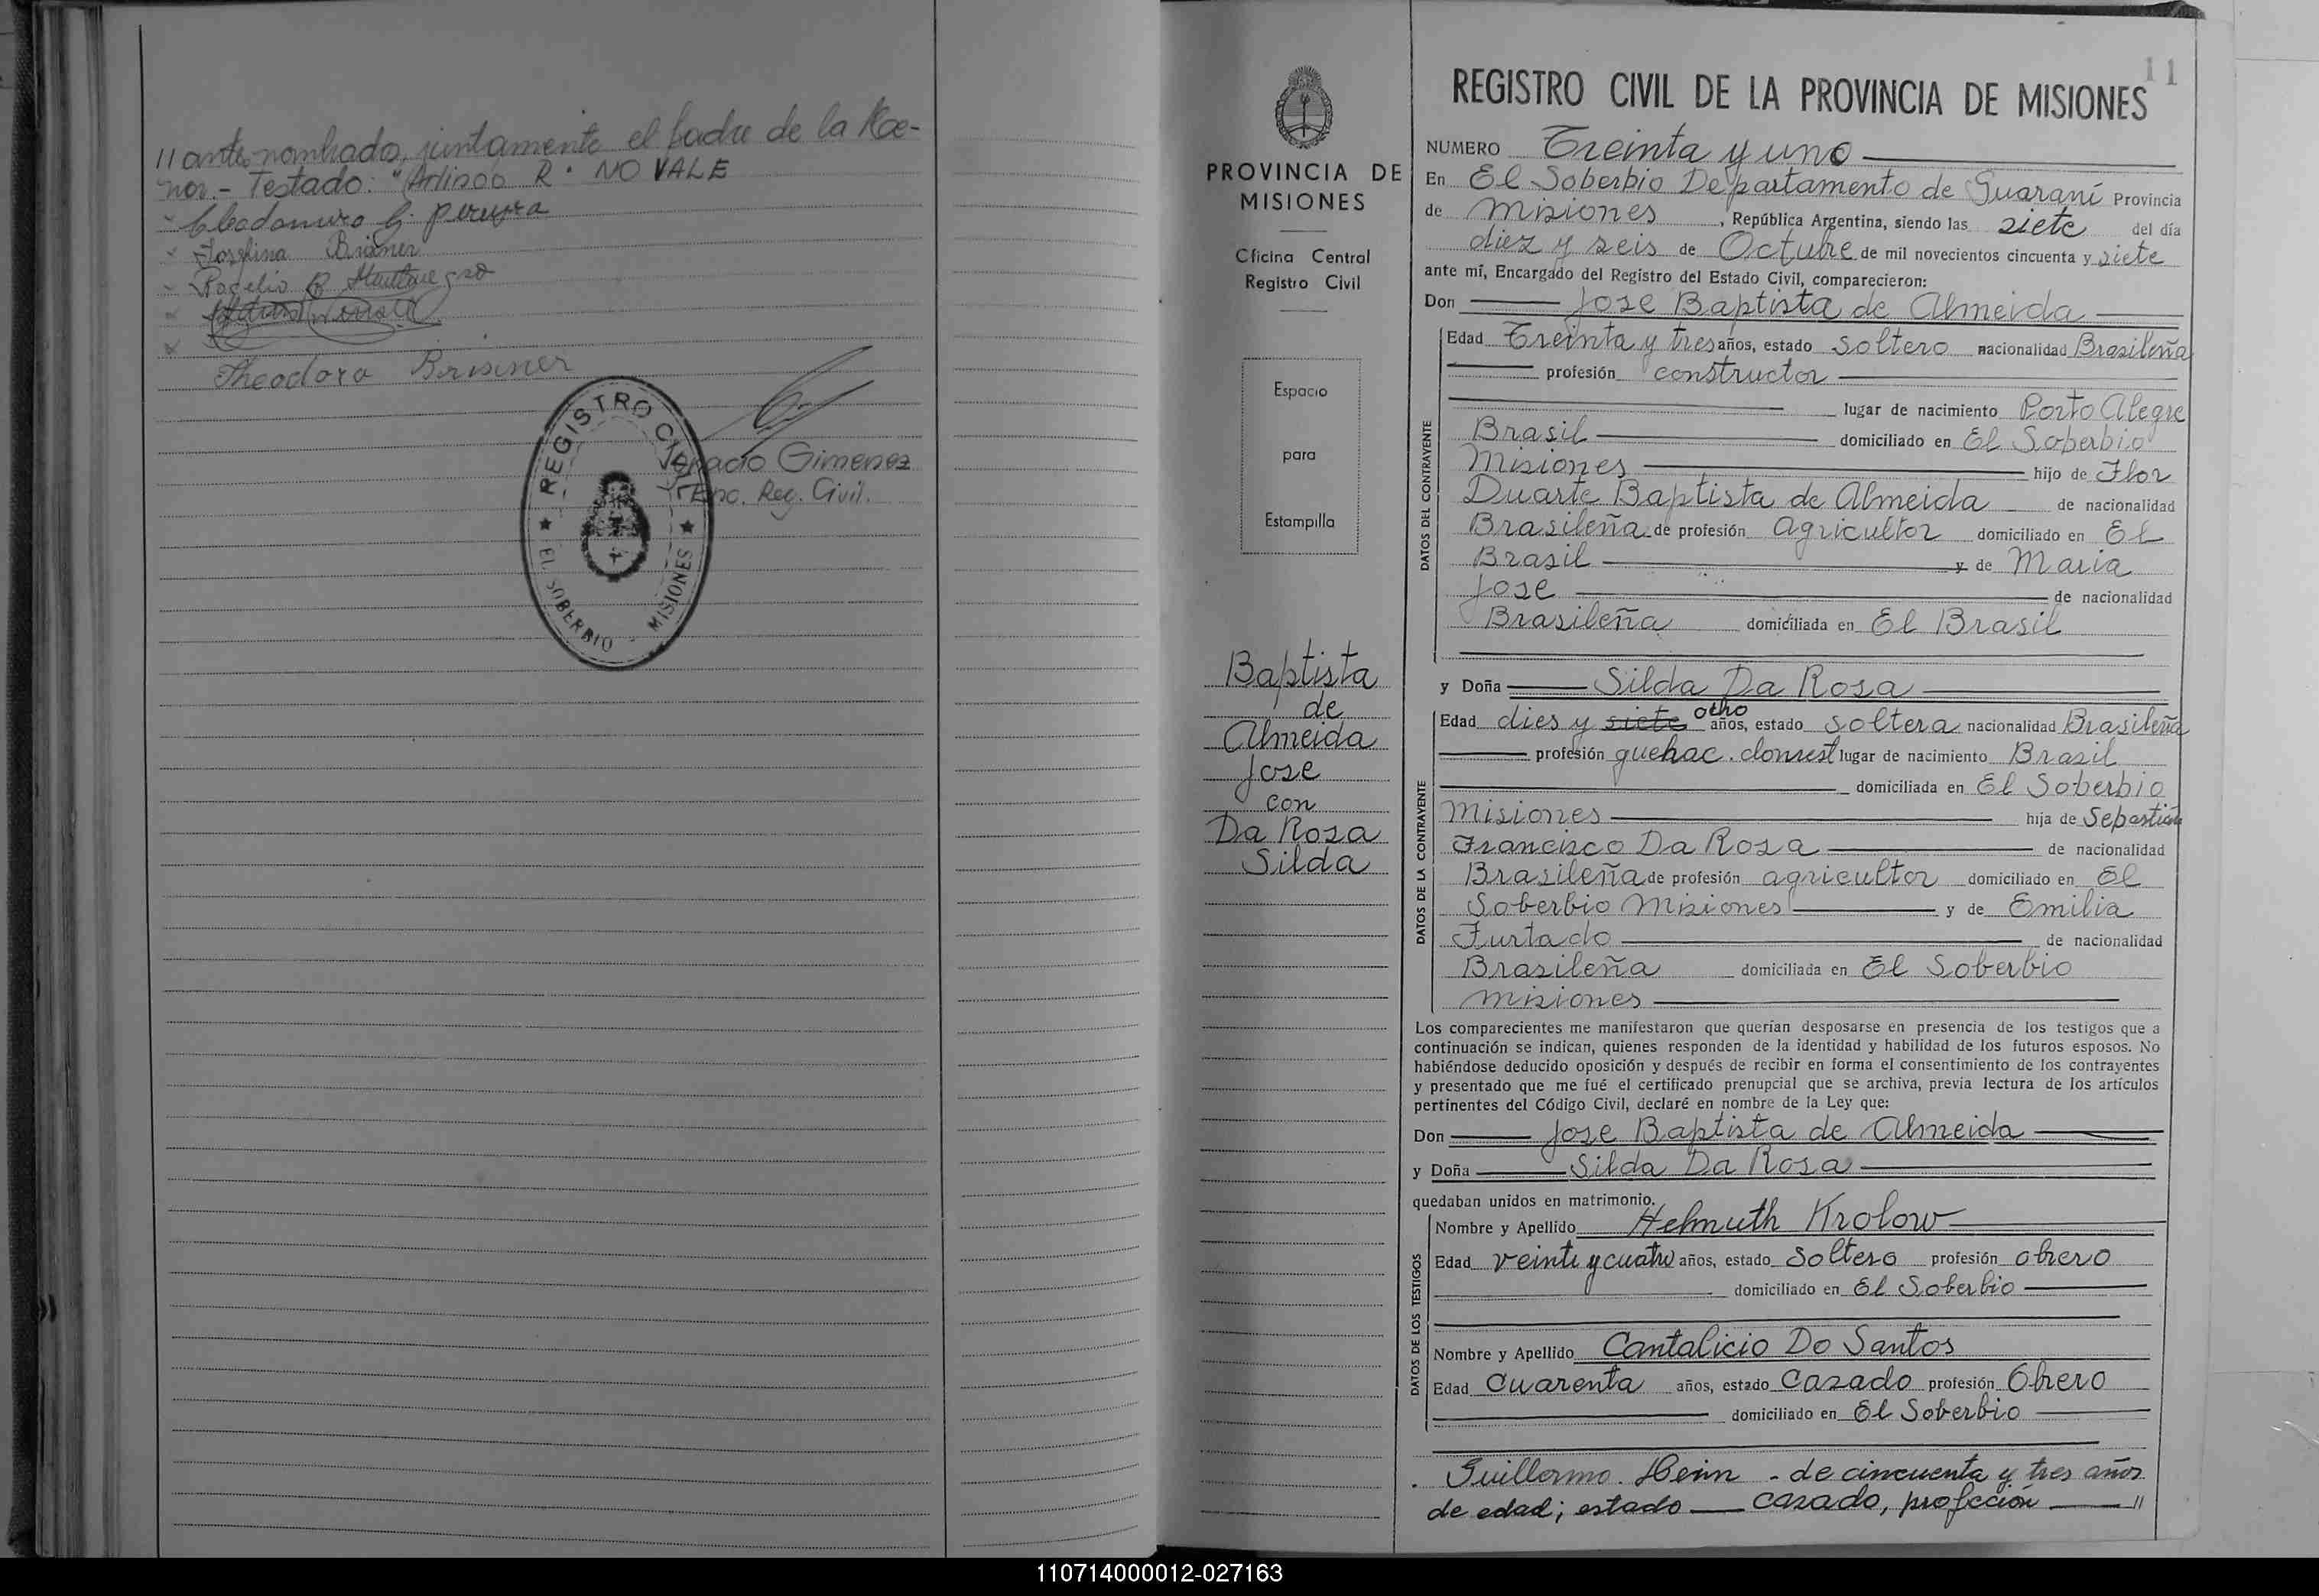 // ante nombrado, juntamente el padre de la Me-
nor.- Testado: "Arlindo R. NO VALE
Clodomiro G. Pereyra
Josefina Brisner
Rogelio B
Theodoro Brisner
Ignacio Gimenez
Enc. Reg. Civil.
REGISTRO CIVIL
EL SOBERBIO - MISIONES
11
PROVINCIA DE
MISIONES
Oficina Central
Registro Civil
Espacio
para
Estampilla
Baptista
de
Almeida
Jose
con
Da Rosa
Silda
REGISTRO CIVIL DE LA PROVINCIA DE MISIONES
NUMERO Treinta y uno
En El Soberbio Departamento de Guaraní Provincia
de Misiones, República Argentina, siendo las siete del día
diez y seis de Octubre de mil novecientos cincuenta y siete
ante mí, Encargado del Registro del Estado Civil, comparecieron:
Don Jose Baptista de Almeida
DATOS DEL CONTRAYENTE
Edad Treinta y tres años, estado soltero nacionalidad Brasileña
profesión constructor
lugar de nacimiento Porto Alegre
Brasil domiciliado en El Soberbio
Misiones hijo de Flor
Duarte Baptista de Almeida de nacionalidad
Brasileña de profesión agricultor domiciliado en El
Brasil y de Maria
Jose de nacionalidad
Brasileña domiciliada en El Brasil
y Doña Silda Da Rosa
DATOS DE LA CONTRAYENTE
Edad dies y siete otho años, estado soltera nacionalidad Brasileña
profesión quehac. domest lugar de nacimiento Brasil
domiciliada en El Soberbio
Misiones hija de Sebastián
Francisco Da Rosa de nacionalidad
Brasileña de profesión agricultor domiciliado en El
Soberbio Misiones y de Emilia
Furtado de nacionalidad
Brasileña domiciliada en El Soberbio
Misiones
Los comparecientes me manifestaron que querían desposarse en presencia de los testigos que a
continuación se indican, quienes responden de la identidad y habilidad de los futuros esposos. No
habiéndose deducido oposición y después de recibir en forma el consentimiento de los contrayentes
y presentado que me fué el certificado prenupcial que se archiva, previa lectura de los artículos
pertinentes del Código Civil, declaré en nombre de la Ley que:
Don Jose Baptista de Almeida
y Doña Silda Da Rosa
quedaban unidos en matrimonio.
DATOS DE LOS TESTIGOS
Nombre y Apellido Helmuth Krolow
Edad veinte y cuatro años, estado soltero profesión obrero
domiciliado en El Soberbio
Nombre y Apellido Cantalicio Do Santos
Edad Cuarenta años, estado Casado profesión Obrero
domiciliado en El Soberbio
Guillermo Hein - de cincuenta y tres años
de edad; estado casado, profeción //
110714000012-027163